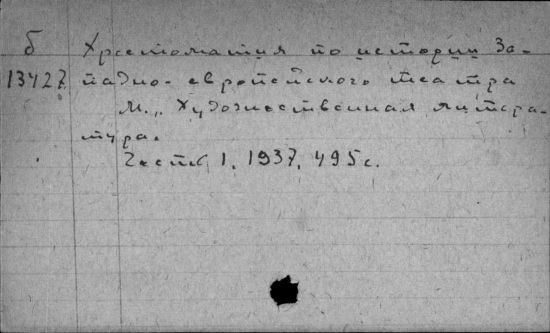 б Хрестоматия по истории За-
13427 падно-европейского театра
М., Художественная литера-
тура.
Часть 1. 1937. 495 с.